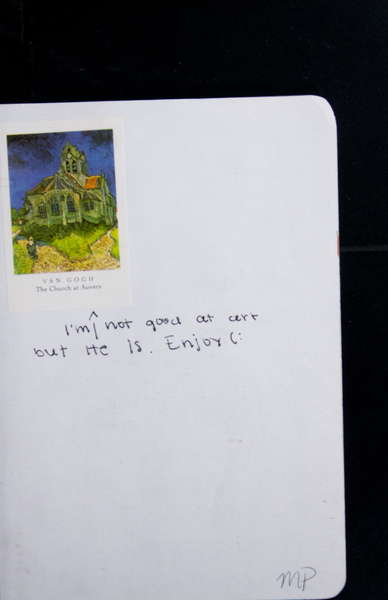 VAN GOGH
The Church at Auvers
I'm^ not good at art
but He is. Enjoy (:
MP